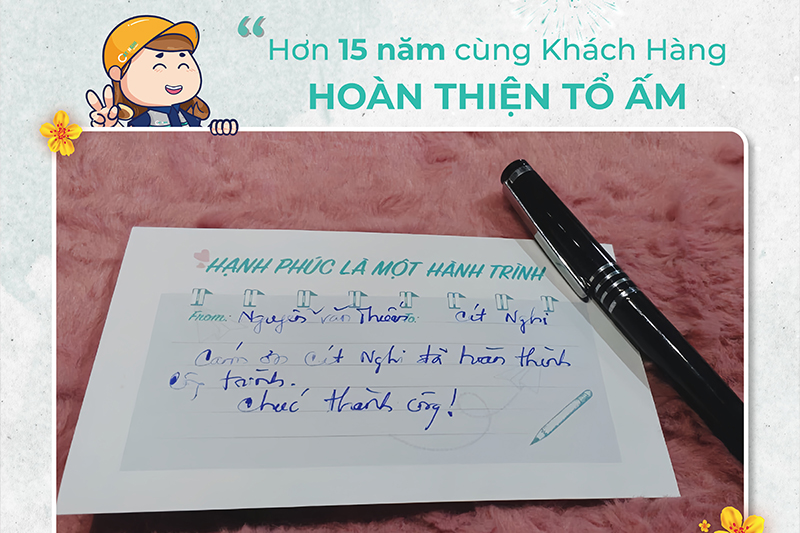 “Hơn 15 năm cùng Khách Hàng
HOÀN THIỆN TỔ ẤM
HẠNH PHÚC LÀ MỘT HÀNH TRÌNH
From: Nguyễn Văn Thiên To: Cát Nghi
Cảm ơn Cát Nghi đã hoàn thành
công trình.
chúc thành công!